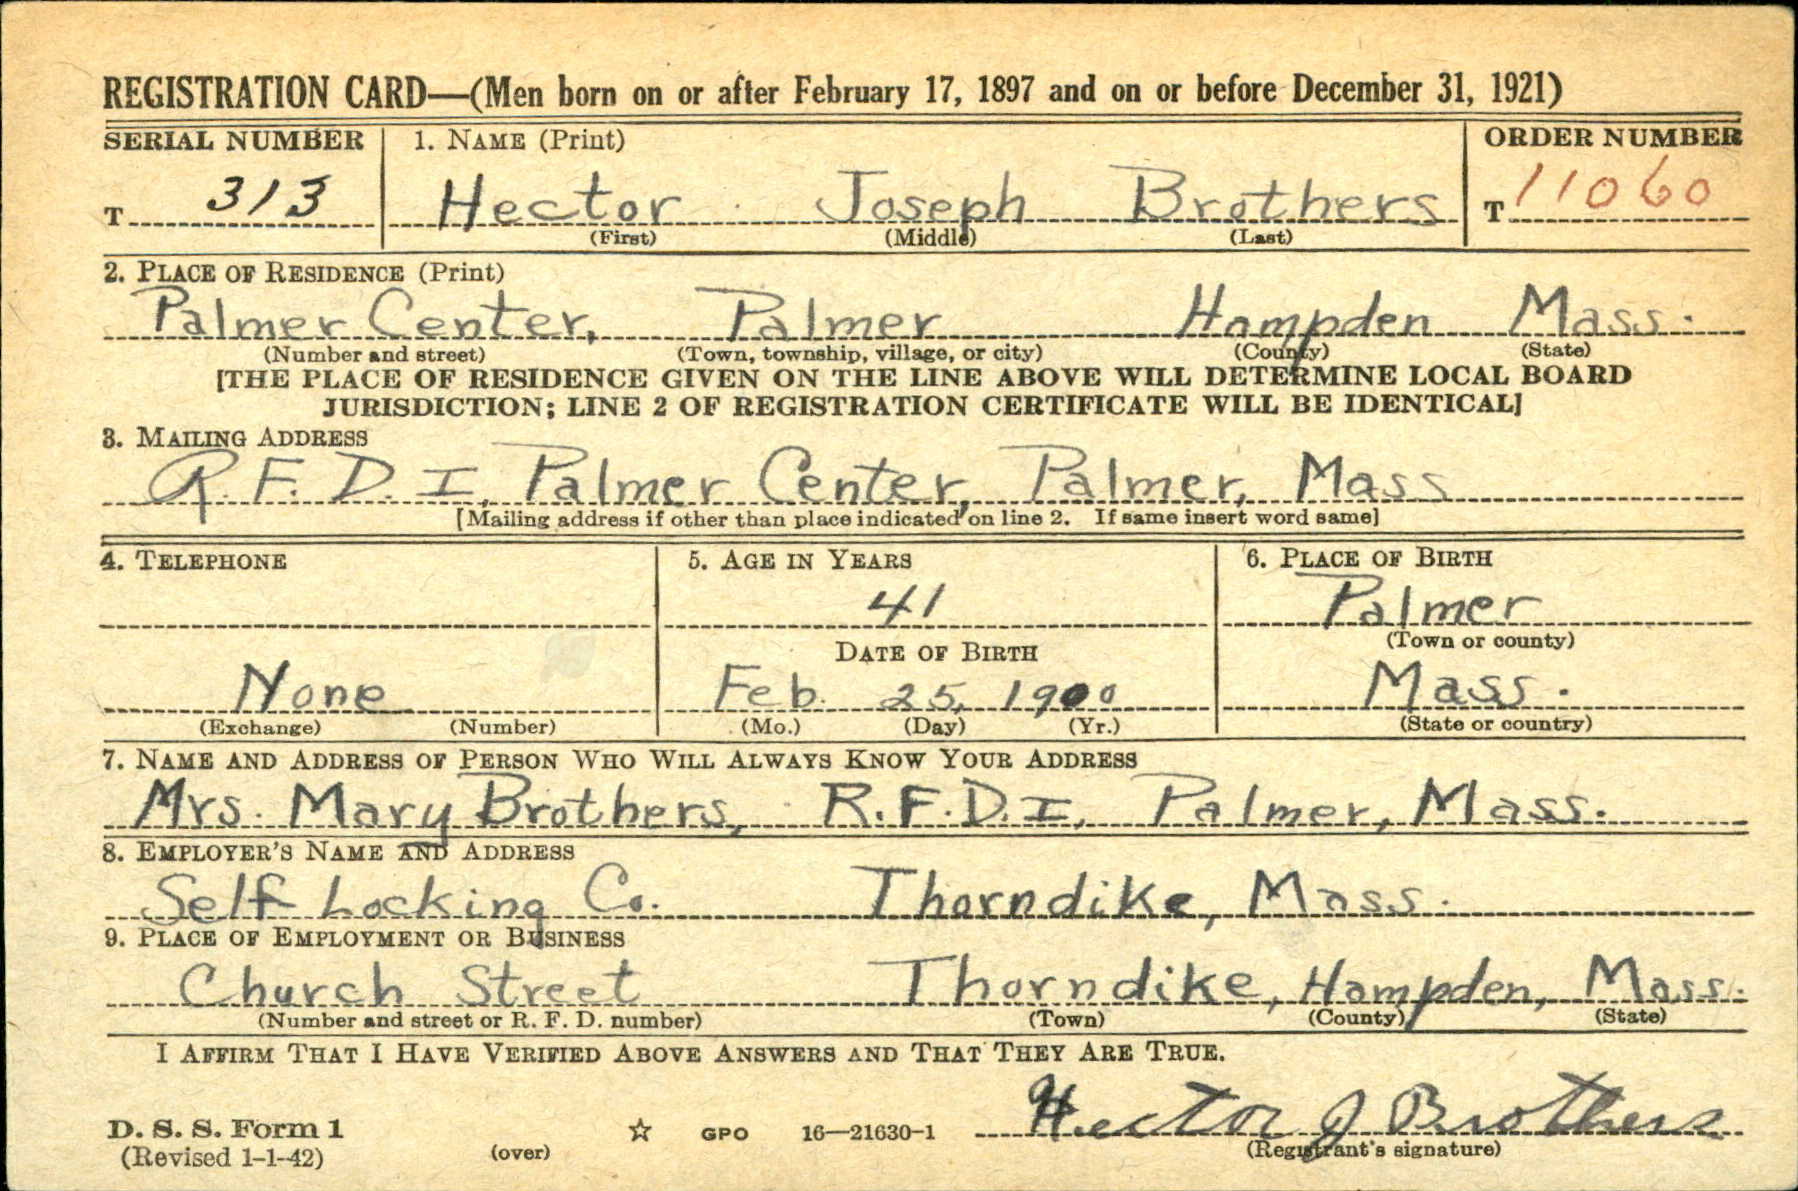 REGISTRATION CARD—(Men born on or after February 17, 1897 and on or before December 31, 1921)
SERIAL NUMBER 1. NAME (Print) ORDER NUMBER
T 313 Hector Joseph Brothers T 11060
(First) (Middle) (Last)
2. PLACE OF RESIDENCE (Print)
Palmer Center, Palmer Hampden Mass.
(Number and street) (Town, township, village, or city) (County) (State)
[THE PLACE OF RESIDENCE GIVEN ON THE LINE ABOVE WILL DETERMINE LOCAL BOARD
JURISDICTION; LINE 2 OF REGISTRATION CERTIFICATE WILL BE IDENTICAL]
3. MAILING ADDRESS
R.F.D. I, Palmer Center, Palmer, Mass
[Mailing address if other than place indicated on line 2. If same insert word same]
4. TELEPHONE 5. AGE IN YEARS 6. PLACE OF BIRTH
41 Palmer
DATE OF BIRTH (Town or county)
None Feb. 25, 1900 Mass.
(Exchange) (Number) (Mo.) (Day) (Yr.) (State or country)
7. NAME AND ADDRESS OF PERSON WHO WILL ALWAYS KNOW YOUR ADDRESS
Mrs. Mary Brothers, R.F.D. I, Palmer, Mass.
8. EMPLOYER'S NAME AND ADDRESS
Self Locking Co. Thorndike, Mass.
9. PLACE OF EMPLOYMENT OR BUSINESS
Church Street Thorndike, Hampden, Mass.
(Number and street or R. F. D. number) (Town) (County) (State)
I AFFIRM THAT I HAVE VERIFIED ABOVE ANSWERS AND THAT THEY ARE TRUE.
D. S. S. Form 1 GPO 16—21630-1 Hector J Brothers
(Revised 1-1-42) (over) (Registrant's signature)